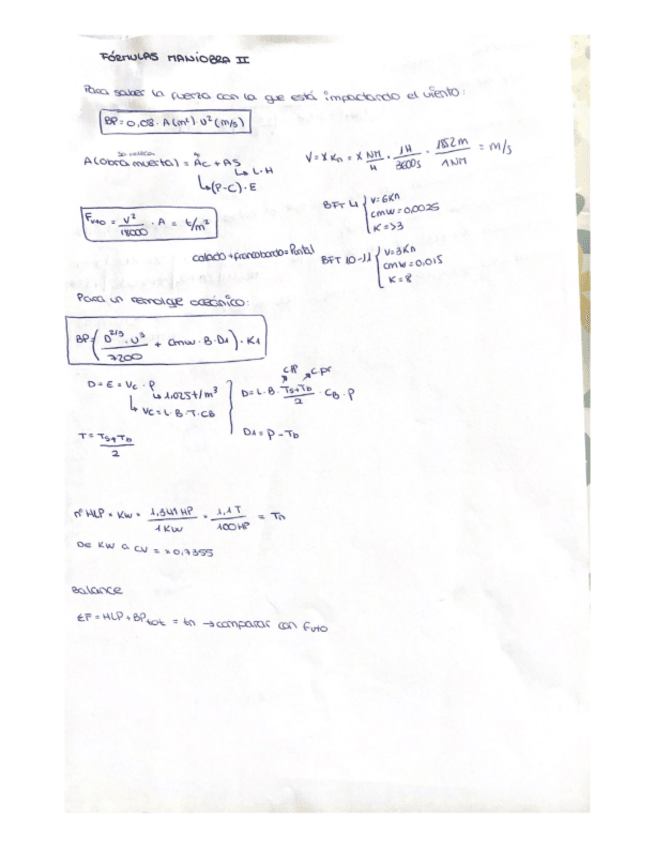 FÓRMULAS MANIOBRA II
Para saber la fuerza con la que está impactando el viento:
BP = 0,08 · A(m²) · v²(m/s)
A(obra muerta) = Ac + AS
↳ L·H
↳ (P-C)·E
V = X Kn = X NM/H · 1H/3600s · 1852m/1NM = m/s
Fvto = v²/18000 · A = t/m²
BFT 4 { V=6Kn
cmw=0,0025
K=>3
calado+francobordo=Puntal
BFT 10-11 { V=3Kn
cmw=0,015
K=8
Para un remolque oceánico:
BP = (D^2/3 · v³/7200 + cmw · B · D1) · K1
D = E = Vc · ρ
↳ 1.025t/m³
↳ Vc = L·B·T·CB
D = L·B· Ts+Tb/2 · CB · ρ
Cpr
T = Ts+Tb/2
D1 = P - Tb
nº HLP = Kw · 1,341 HP/1 KW · 1,1T/100HP = Tn
De KW a CV = × 0,7355
Balance
ΣF = HLP + BPtot = tn → comparar con Fvto